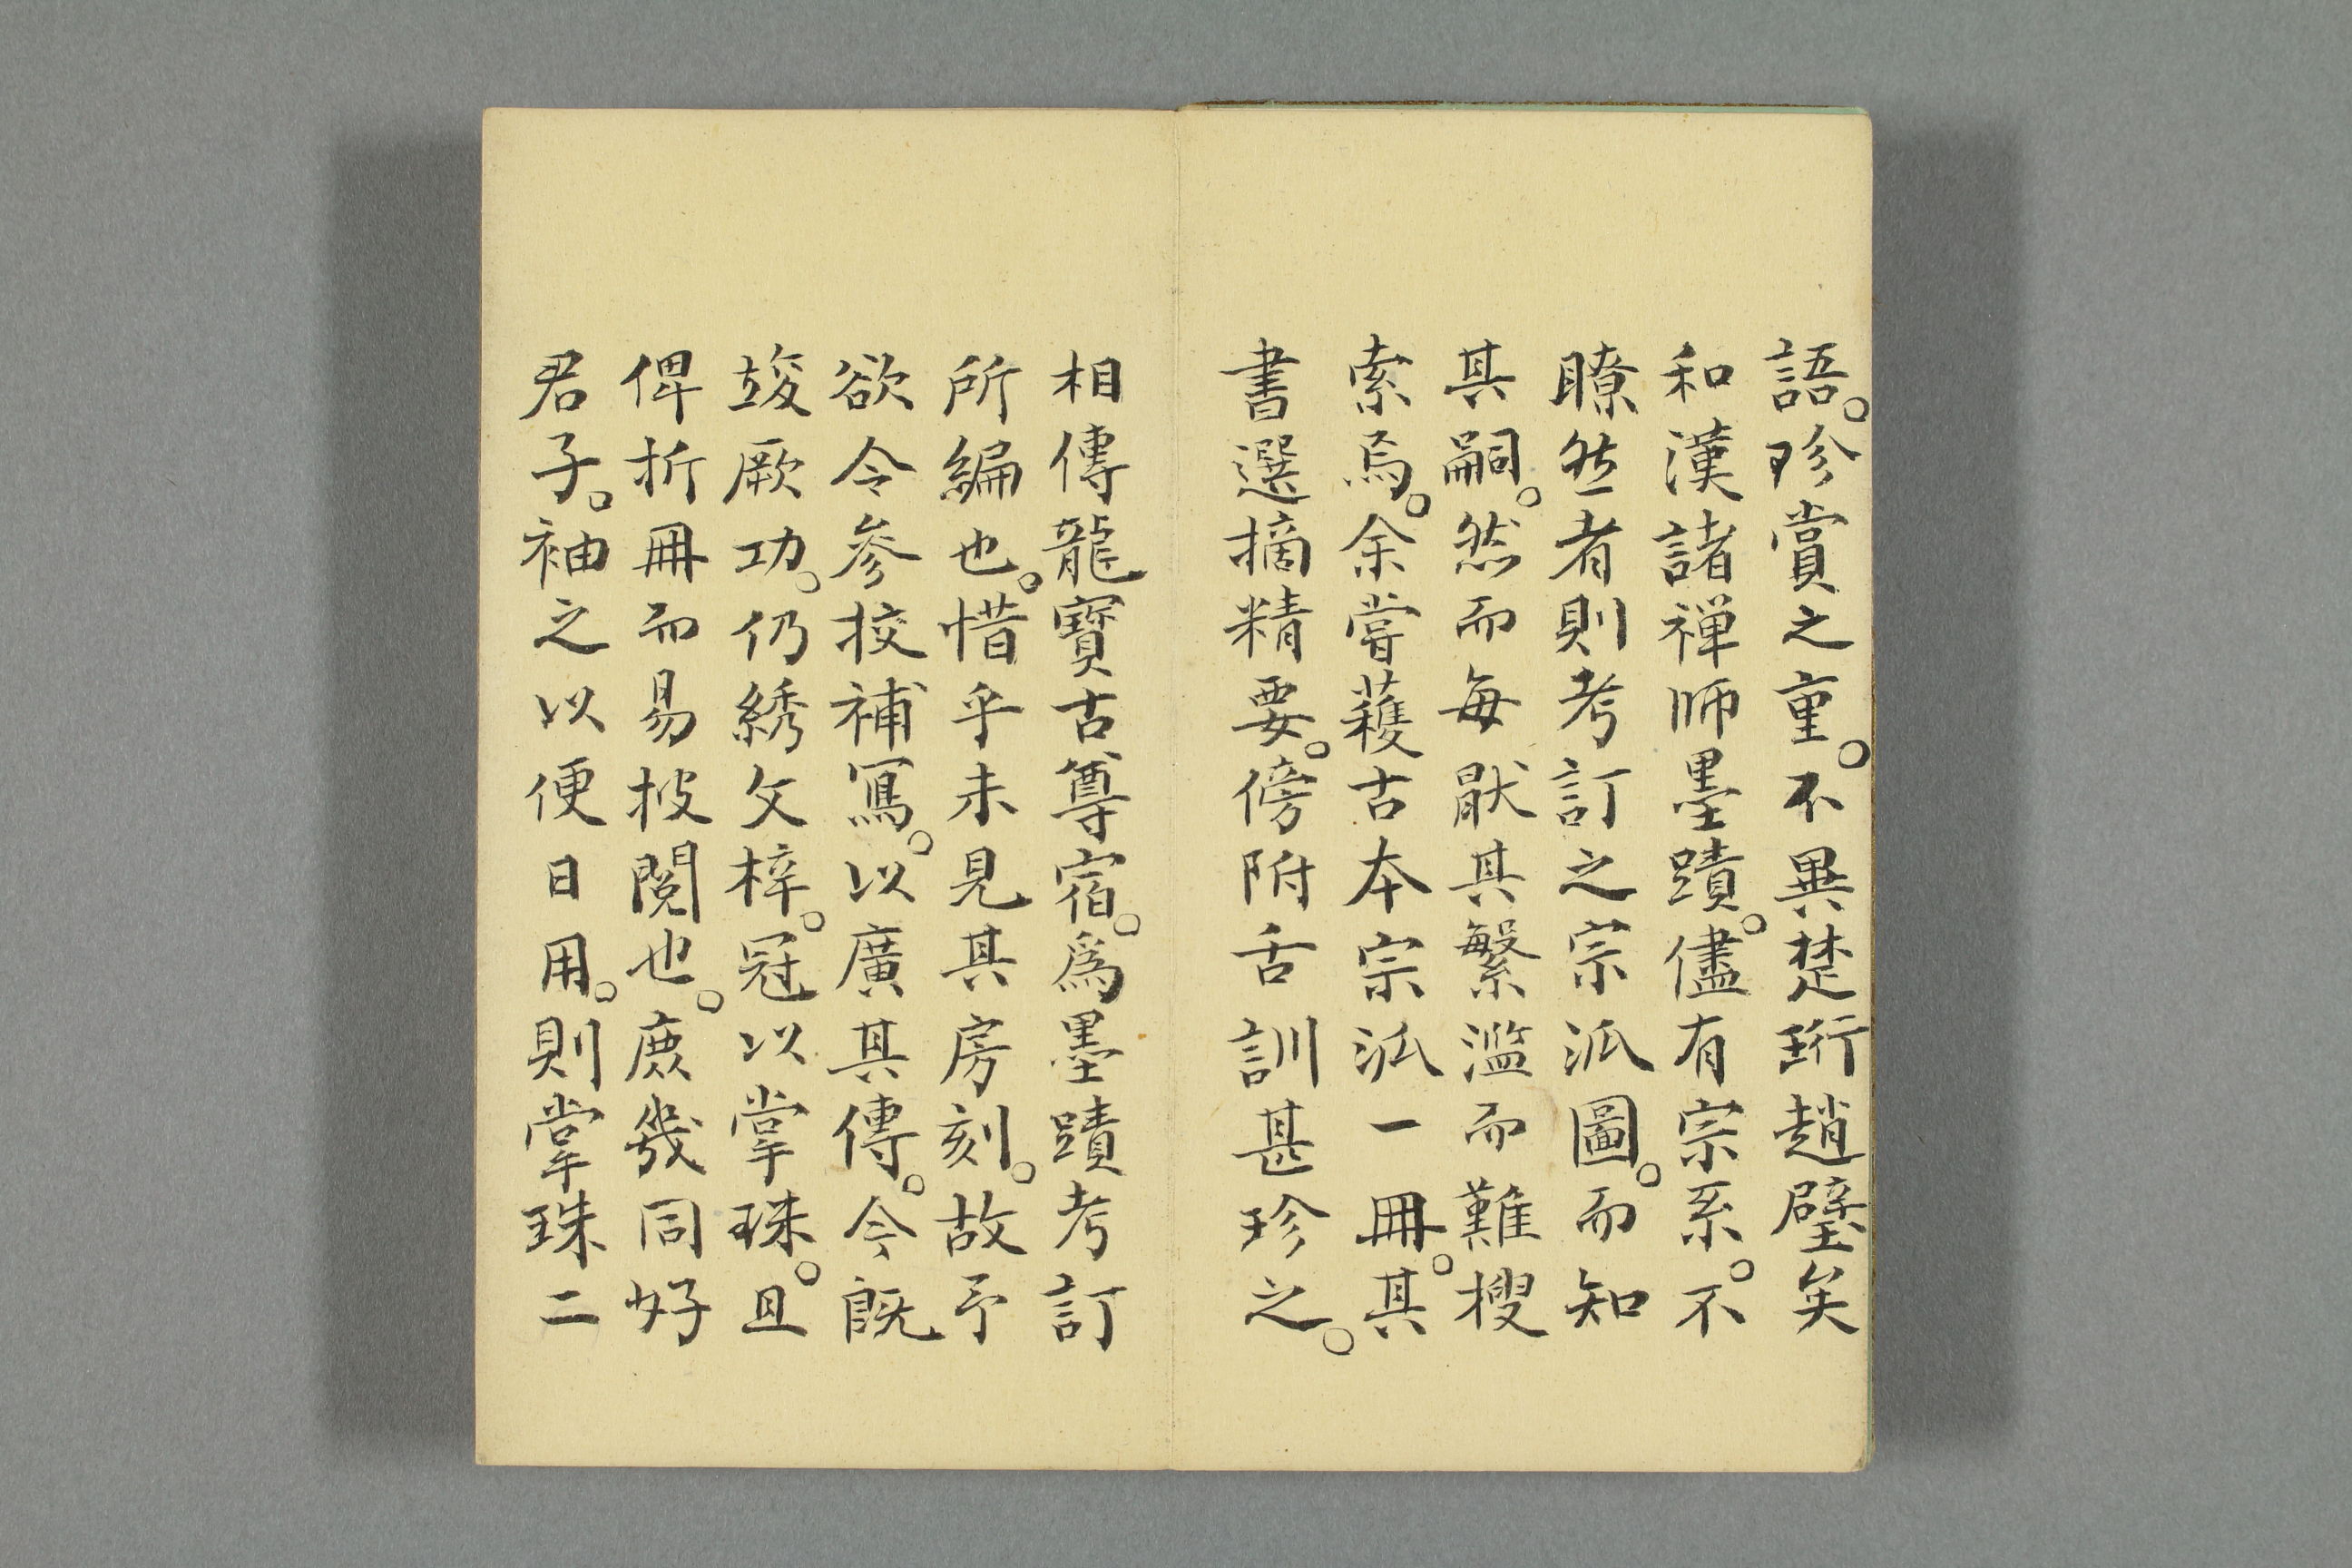 語。珍賞之重。不異楚珩趙璧矣
和漢諸禅師墨蹟。儘有宗系。不
瞭然者則考訂之宗派圖。而知
其嗣。然而每厭其繁濫而難搜
索焉。余嘗蒦古本宗派一冊。其
書選摘精要。傍附舌訓甚珍之。
相傳龍寶古尊宿。為墨蹟考訂
所編也。惜乎未見其房刻。故予
欲令參挍補寫。以廣其傳。今既
竣厥功。仍綉文梓。冠以掌珠。且
俾折冊而易披閱也。庶幾同好
君子。袖之以便日用。則掌珠二